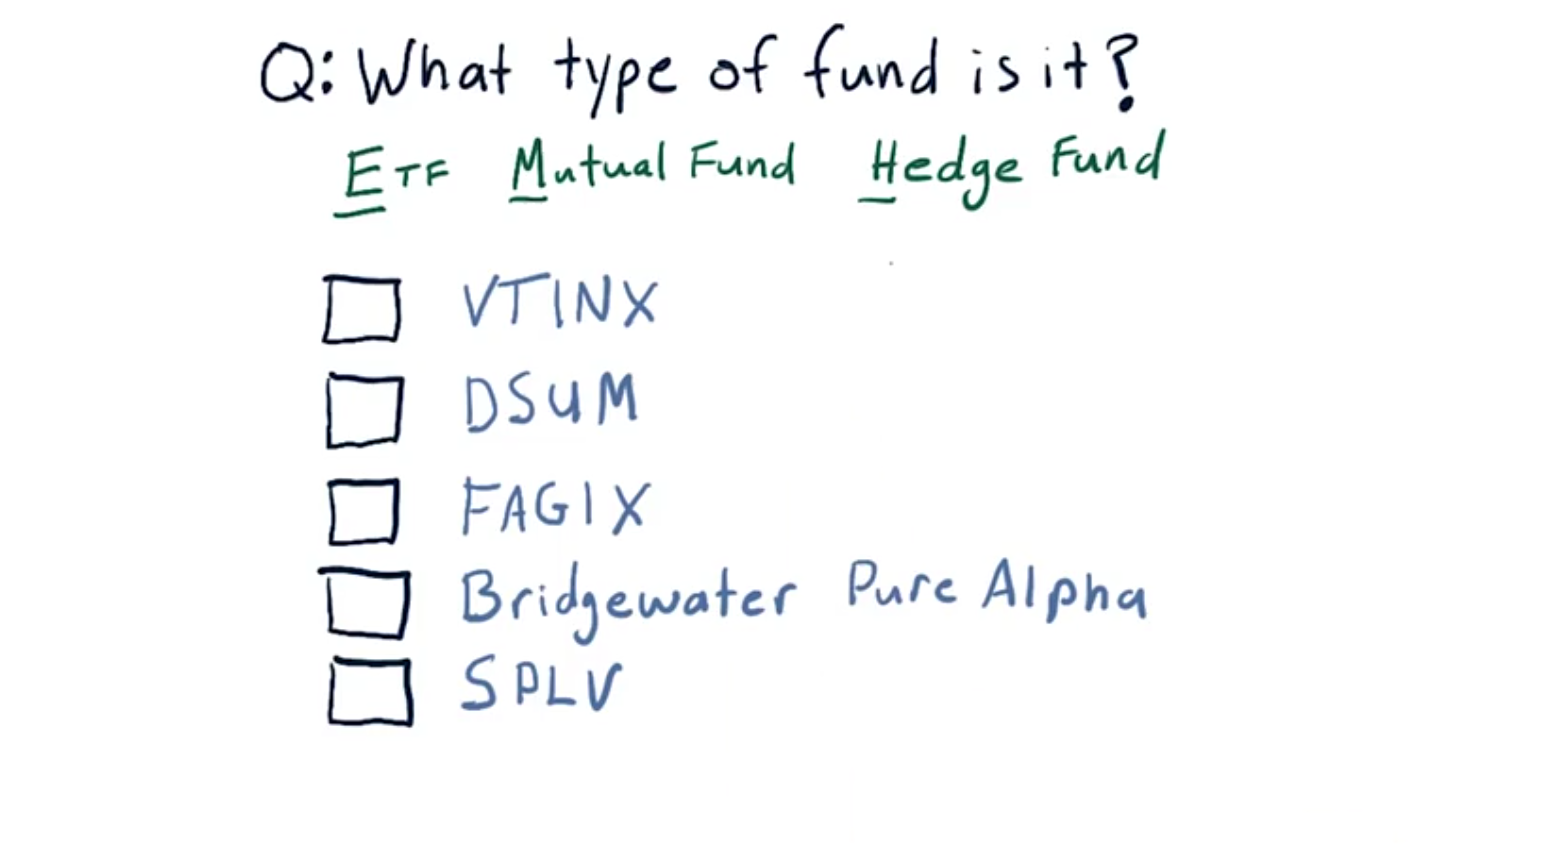 Q: What type of fund is it?
ETF Mutual Fund Hedge Fund
VTINX
DSUM
FAGIX
Bridgewater Pure Alpha
SPLV